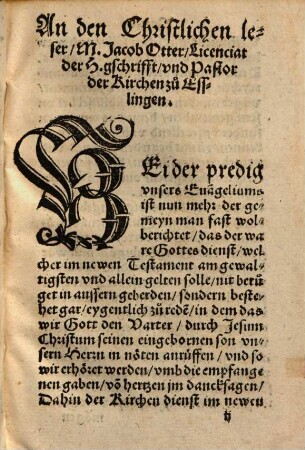 An den Christlichen le-
ser/M. Jacob Otter/Licenciat
der H. gschrifft/vnd Pastor
der Kirchen zů Ess-
lingen.
BEi der predig
vnsers Euãgeliums
ist nun mehr der ge-
meyn man fast wol
berichtet/das der wa-
re Gottes dienst/wel-
cher im newen Testament am gewal-
tigsten vnd allein gelten solle/nit berů-
get in aussern geberden/sondern beste-
het gar/eygentlich zů redẽ/in dem das
wir Gott den Vatter/durch Jesum
Christum seinen eingebornen son vn-
sern Herrn in nöten anrůffen/vnd so
wir erhöret werden/vmb die empfange
nen gaben/võ hertzen jm dancksagen/
Dahin der Kirchen dienst im newen